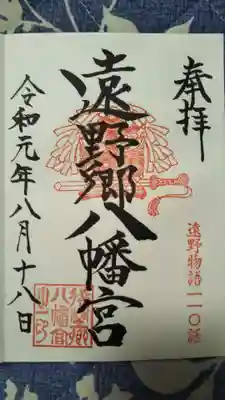 奉拝
遠野物語一一〇話
遠野郷八幡宮
令和元年八月十八日